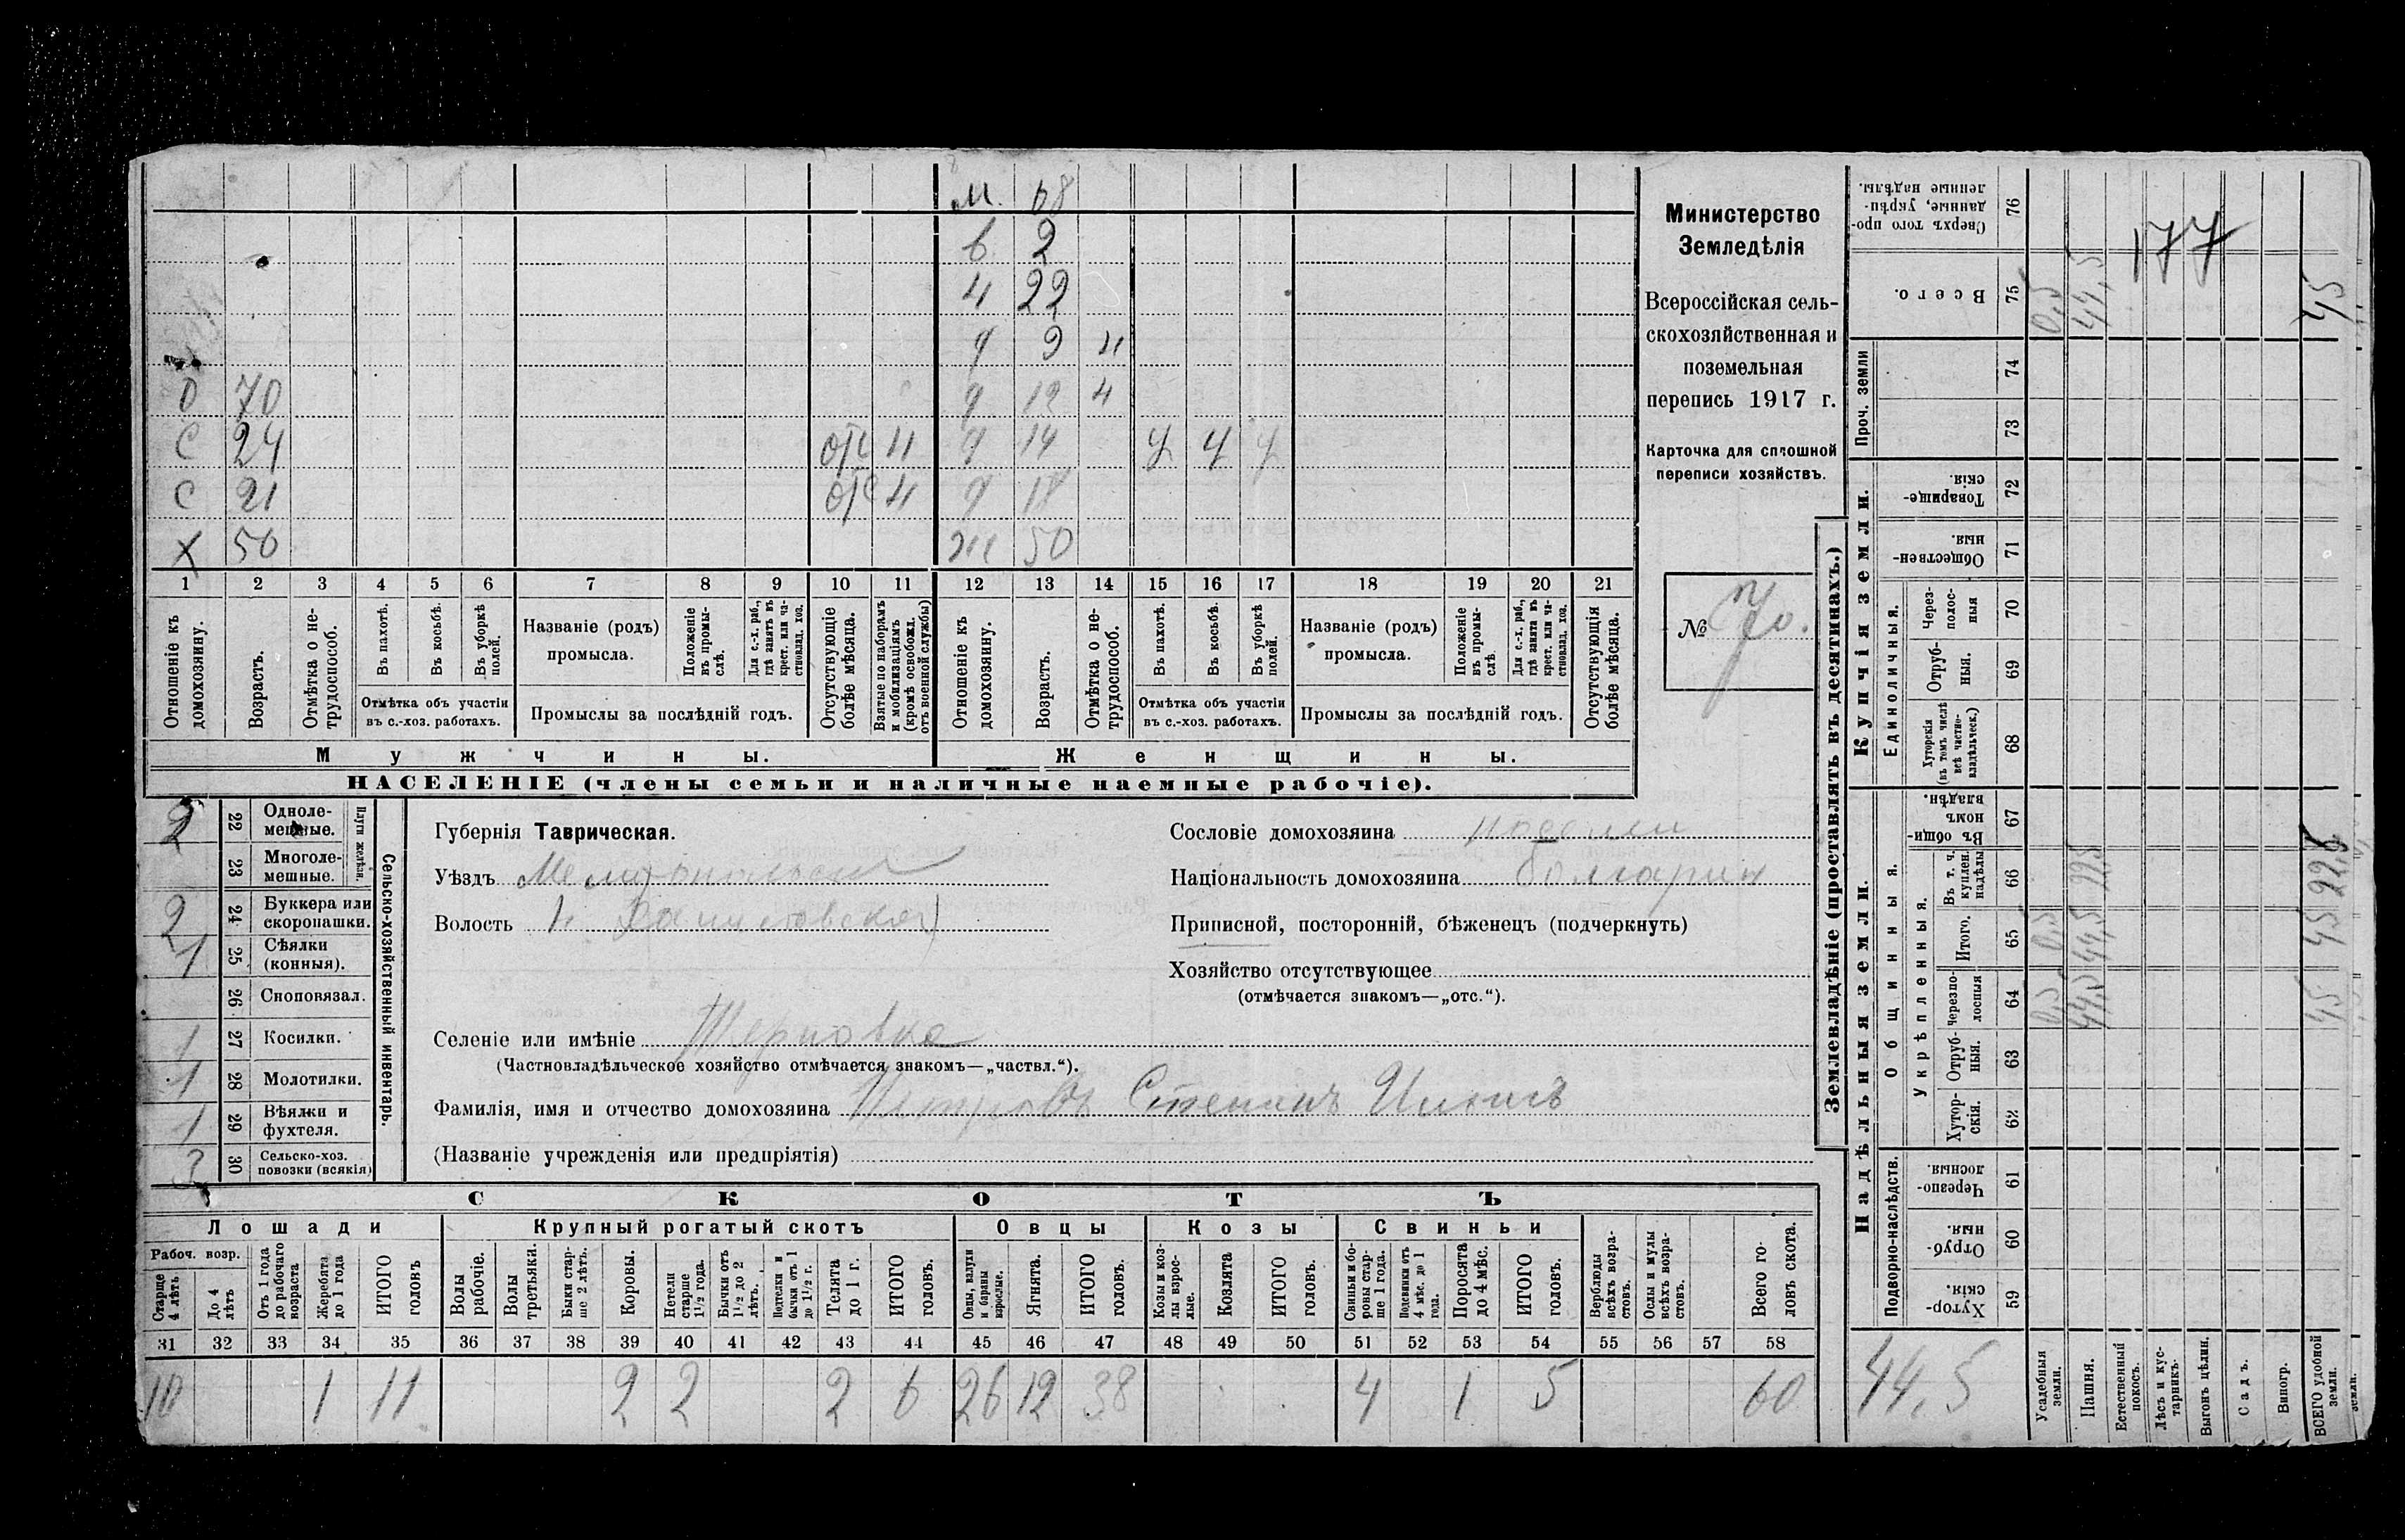 М. 68
в 2
4 22
9 9 н
D 70 9 12 н
С 24 отс н 9 14 У У У
С 21 отс н 9 18
Х 50 Ж 50
1 2 3 4 5 6 7 8 9 10 11 12 13 14 15 16 17 18 19 20 21
Отношеніе къ домохозяину.
Возрастъ.
Отмѣтка о нетрудоспособ.
Въ пахотѣ.
Въ косьбѣ.
Въ уборкѣ полей.
Отмѣтка объ участіи въ с.-хоз. работахъ.
Названіе (родъ) промысла.
Положеніе въ промыслѣ.
Для с.-х. раб., гдѣ занятъ въ крест. или частновлад. хоз.
Промыслы за послѣдній годъ.
Отсутствующіе болѣе мѣсяца.
Взятые по наборамъ и мобилизаціямъ (кромѣ освобожд. отъ военной службы)
Отношеніе къ домохозяину.
Возрастъ.
Отмѣтка о нетрудоспособ.
Въ пахотѣ.
Въ косьбѣ.
Въ уборкѣ полей.
Отмѣтка объ участіи въ с.-хоз. работахъ.
Названіе (родъ) промысла.
Положеніе въ промыслѣ.
Для с.-х. раб., гдѣ занята въ крест. или частновлад. хоз.
Промыслы за послѣдній годъ.
Отсутствующія болѣе мѣсяца.
Мужчины. Женщины.
НАСЕЛЕНІЕ (члены семьи и наличные наемные рабочіе).
Министерство
Земледѣлія
Всероссійская сель-
скохозяйственная и
поземельная
перепись 1917 г.
Карточка для сплошной
переписи хозяйствъ.
№ 70.
2 22 Однолемешные.
23 Многолемешные.
Плуги желѣзн.
2 24 Буккера или скоропашки.
1 25 Сѣялки (конныя).
26 Сноповязал.
1 27 Косилки.
1 28 Молотилки.
1 29 Вѣялки и фухтеля.
3 30 Сельско-хоз. повозки (всякія)
Сельско-хозяйственный инвентарь.
Губернія Таврическая.
Уѣздъ Мелитопольскій
Волость
Сословіе домохозяина поселян
Національность домохозяина болгаринъ
Приписной, посторонній, бѣженецъ (подчеркнуть)
Хозяйство отсутствующее
(отмѣчается знакомъ—„отс.“).
Селеніе или имѣніе Терновка
(Частновладѣльческое хозяйство отмѣчается знакомъ—„частвл.“).
Фамилія, имя и отчество домохозяина Петровъ Степанъ
(Названіе учрежденія или предпріятія)
СКОТЪ
Лошади Крупный рогатый скотъ Овцы Козы Свиньи
Рабоч. возр.
Старше 4 лѣтъ
До 4 лѣтъ
Отъ 1 года до рабочаго возраста
Жеребята до 1 года
ИТОГО головъ
Волы рабочіе.
Волы третьяки.
Быки старше 2 лѣтъ.
Коровы.
Нетели старше 1½ года.
Бычки отъ 1½ до 2 лѣтъ.
Подтелки и бычки отъ 1 до 1½ г.
Телята до 1 г.
ИТОГО головъ.
Овцы, валухи и бараны взрослые.
Ягнята.
ИТОГО головъ.
Козы и козлы взрослые.
Козлята
ИТОГО головъ.
Свиньи и боровы старше 1 года.
Подсвинки отъ 4 мѣс. до 1 года.
Поросята до 4 мѣс.
ИТОГО головъ.
Верблюды всѣхъ возрастовъ.
Ослы и мулы всѣхъ возрастовъ.
Всего головъ скота.
31 32 33 34 35 36 37 38 39 40 41 42 43 44 45 46 47 48 49 50 51 52 53 54 55 56 57 58
10 1 11 2 2 2 6 26 12 38 4 1 5 60
Землевладѣніе (проставлять въ десятинахъ.)
Купчія земли.
Надѣльныя земли.
Сверхъ того проданные, укрѣпленные надѣлы. 76
Всего. 75 0,5 44,5 45
177
Проч. земли 74
73
Товарищескія. 72
Общественныя. 71
Единоличныя.
Черезполосныя 70
Отрубныя. 69
Хуторскія (въ томъ числѣ всѣ частновладѣльческ.) 68
Общинныя.
Въ общинномъ владѣн. 67
Укрѣпленныя.
Въ т. ч. куплен. надѣлы 66 22,5 22,5
Итого. 65 0,5 44,5 45
Черезполосныя 64 0,5 44,5 45
Отрубныя. 63
Хуторскія. 62
Подворно-наслѣдств.
Черезполосныя. 61
Отрубныя. 60
Хуторскія. 59
44,5
Усадебныя земли.
Пашня.
Естественный покосъ.
Лѣсъ и кустарникъ.
Выгонъ цѣлин.
Садъ.
Виногр.
ВСЕГО удобной земли.
земли.